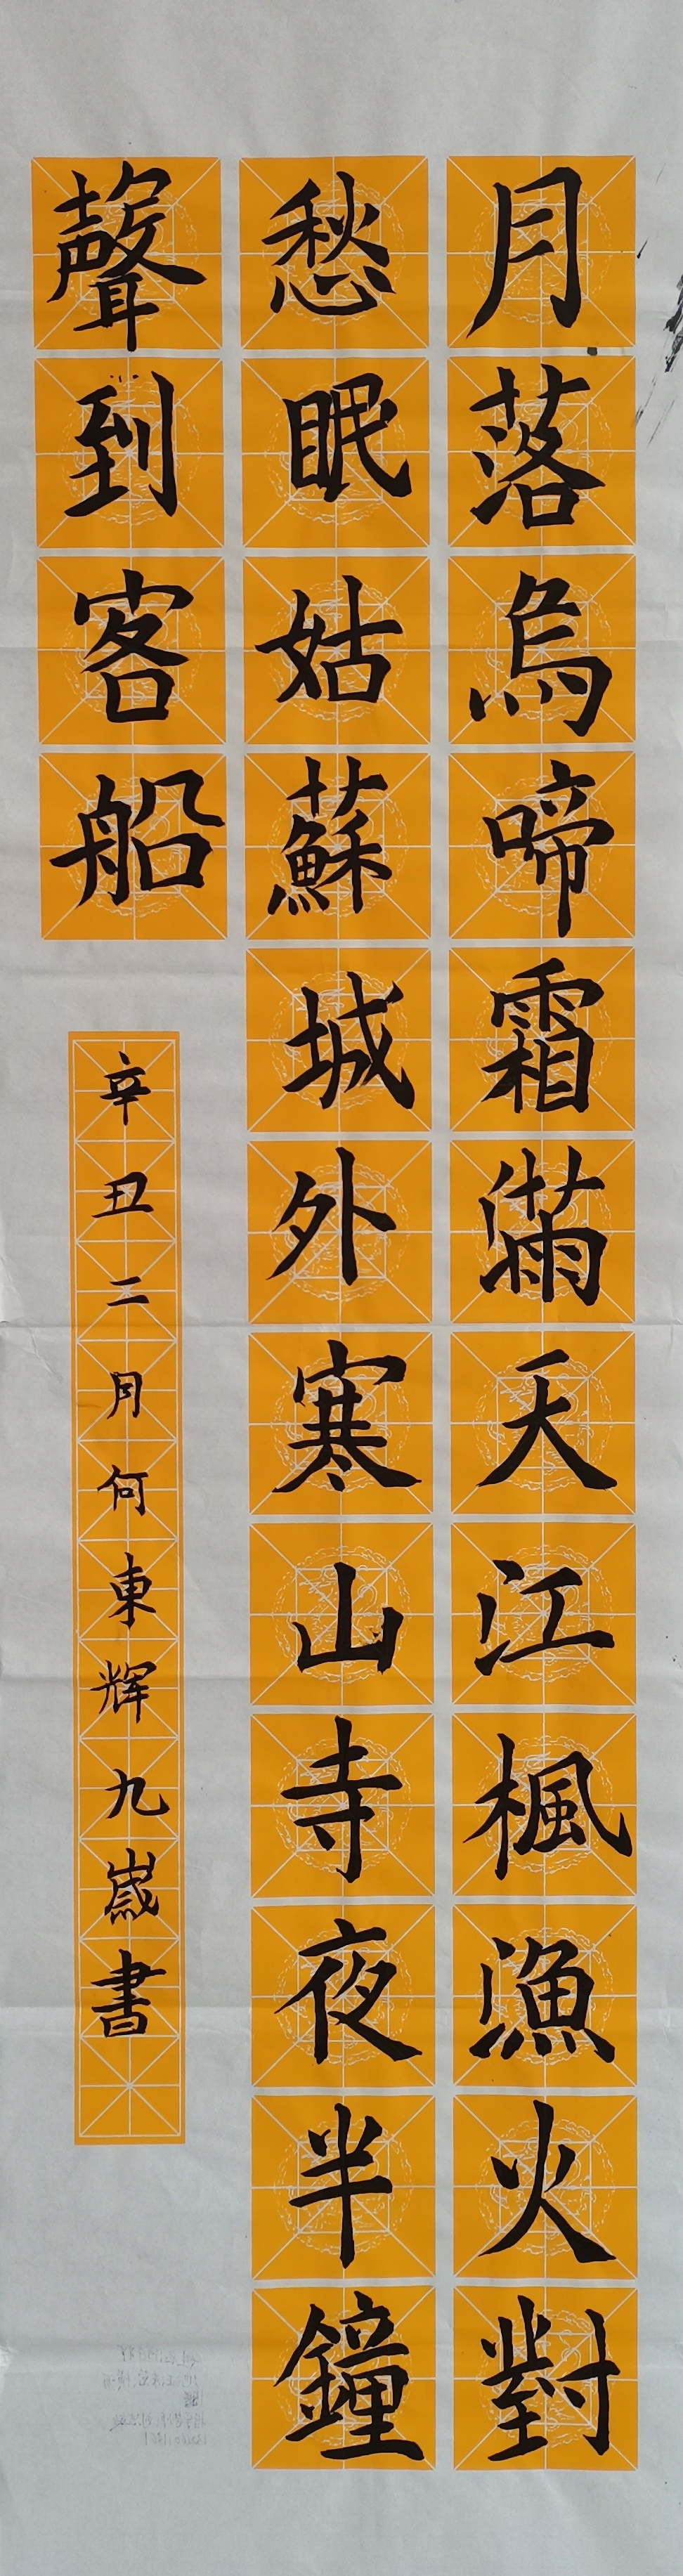 月落烏啼霜滿天江楓漁火對
愁眠姑蘇城外寒山寺夜半鐘
聲到客船
辛丑二月何東輝九歲書